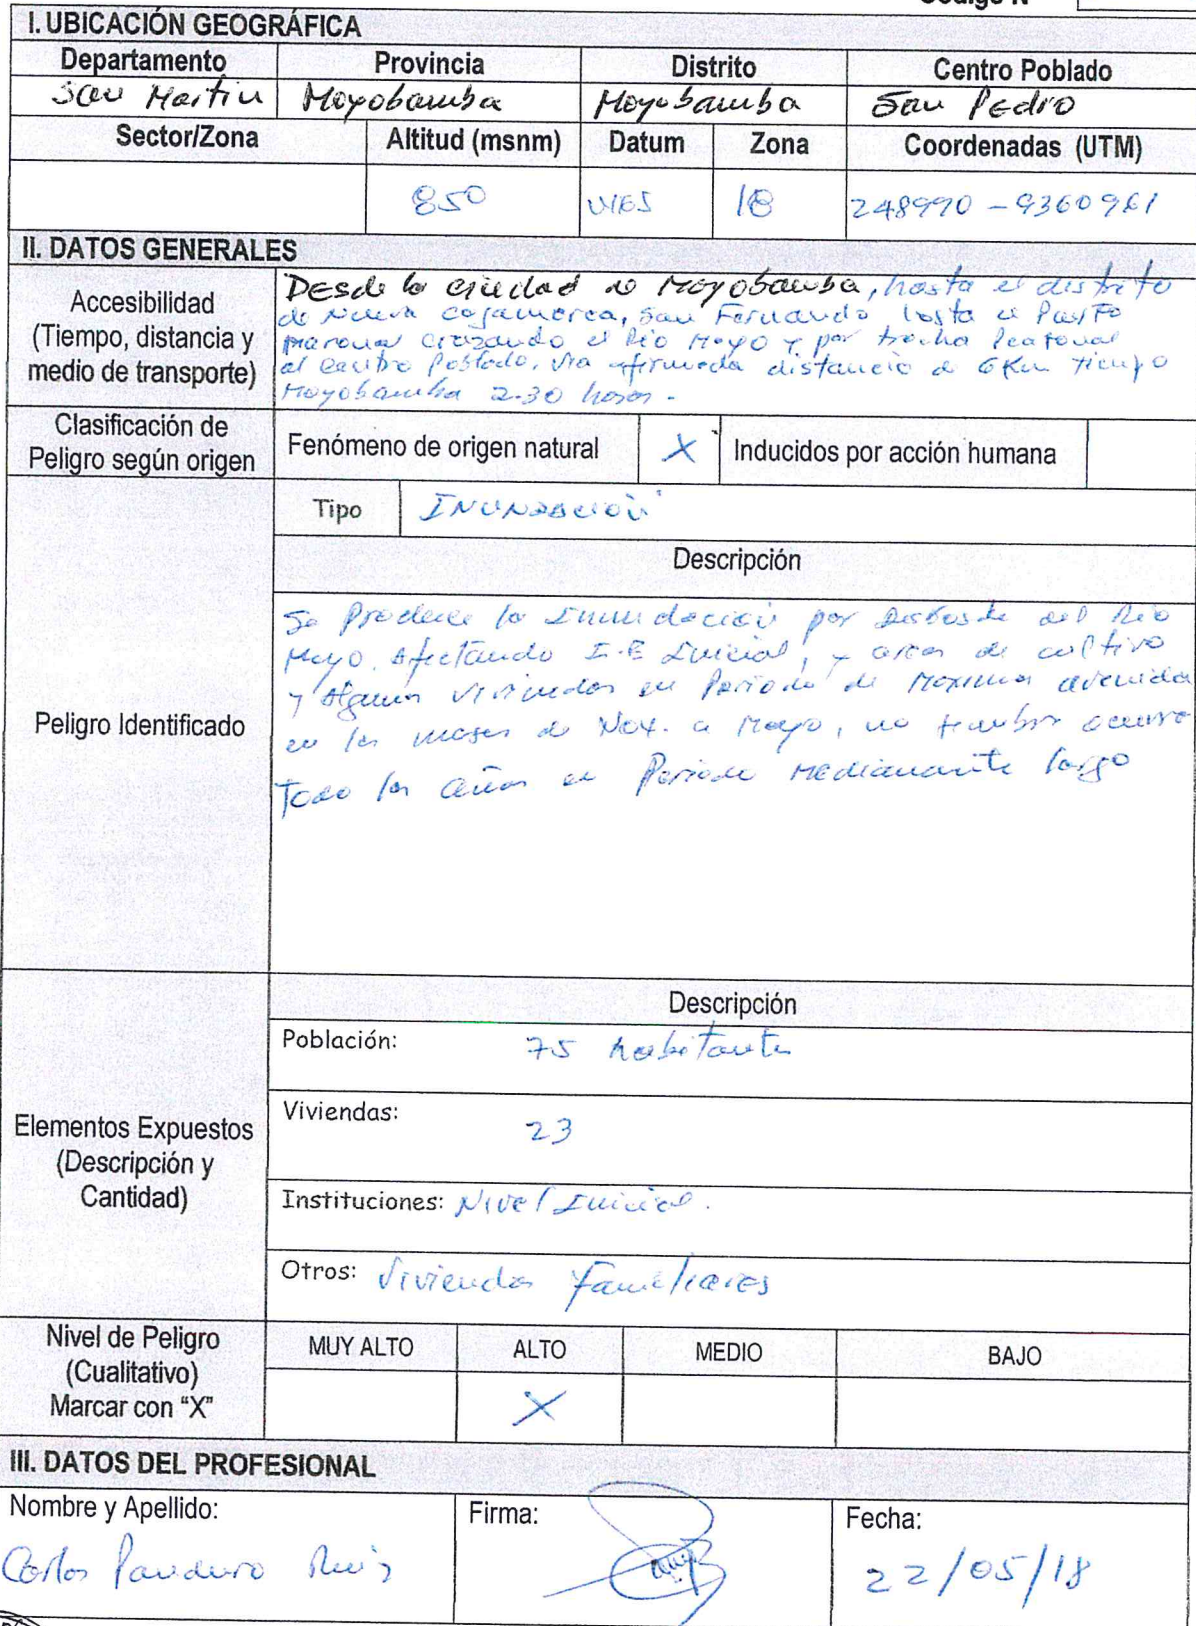 Código N
I. UBICACIÓN GEOGRÁFICA
Departamento Provincia Distrito Centro Poblado
San Martin Moyobamba Moyobamba San Pedro
Sector/Zona Altitud (msnm) Datum Zona Coordenadas (UTM)
850 18 248990 - 9360961
II. DATOS GENERALES
Accesibilidad
(Tiempo, distancia y
medio de transporte)
Desde la ciudad de Moyobamba, hasta el distrito
de Nueva Cajamarca, San Fernando hasta el Puerto
cruzando el Río Mayo y por trocha Peatonal
al centro Poblado, via afirmada distancia de 6Km tiempo
Moyobamba 2.30 horas.
Clasificación de
Peligro según origen
Fenómeno de origen natural X Inducidos por acción humana
Peligro Identificado
Tipo Inundación
Descripción
Se Produce la Inundación por Desborde del Río
Mayo. Afectando I.E Inicial, y areas de cultivo
y algunas viviendas en Periodo de Maxima avenida
en los meses de Nov. a Mayo, no ocurre
todo los años en Periodo Medianamente largo
Elementos Expuestos
(Descripción y
Cantidad)
Descripción
Población: 75 habitantes
Viviendas: 23
Instituciones: Nivel Inicial.
Otros: Viviendas Familiares
Nivel de Peligro
(Cualitativo)
Marcar con “X”
MUY ALTO ALTO MEDIO BAJO
X
III. DATOS DEL PROFESIONAL
Nombre y Apellido: Firma: Fecha:
Carlos Panduro Ruiz 22/05/18